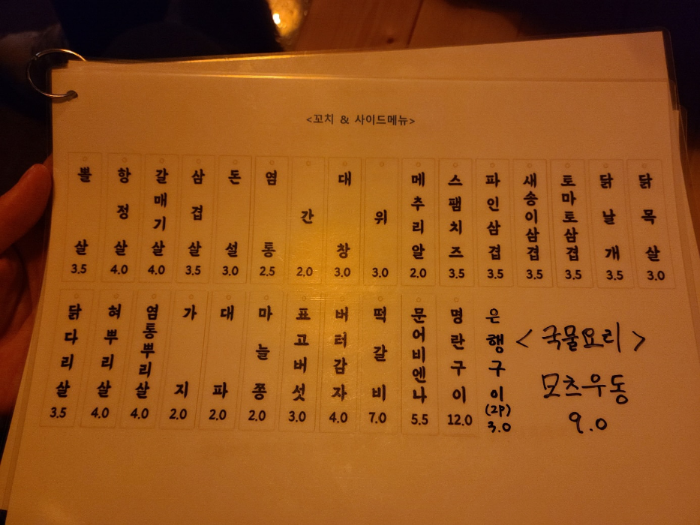 <꼬치 & 사이드메뉴>
뽈살 3.5
항정살 4.0
갈매기살 4.0
삼겹살 3.5
돈설 3.0
염통 2.5
간 2.0
대창 3.0
위 3.0
메추리알 2.0
스팸치즈 3.5
파인삼겹 3.5
새송이삼겹 3.5
토마토삼겹 3.5
닭날개 3.5
닭목살 3.0
닭다리살 3.5
혀뿌리살 4.0
염통뿌리살 4.0
가지 2.0
대파 2.0
마늘쫑 2.0
표고버섯 3.0
버러감자 4.0
떡갈비 7.0
문어비엔나 5.5
명란구이 12.0
은행구이 (2P) 3.0
<국물요리>
모츠우동
9.0